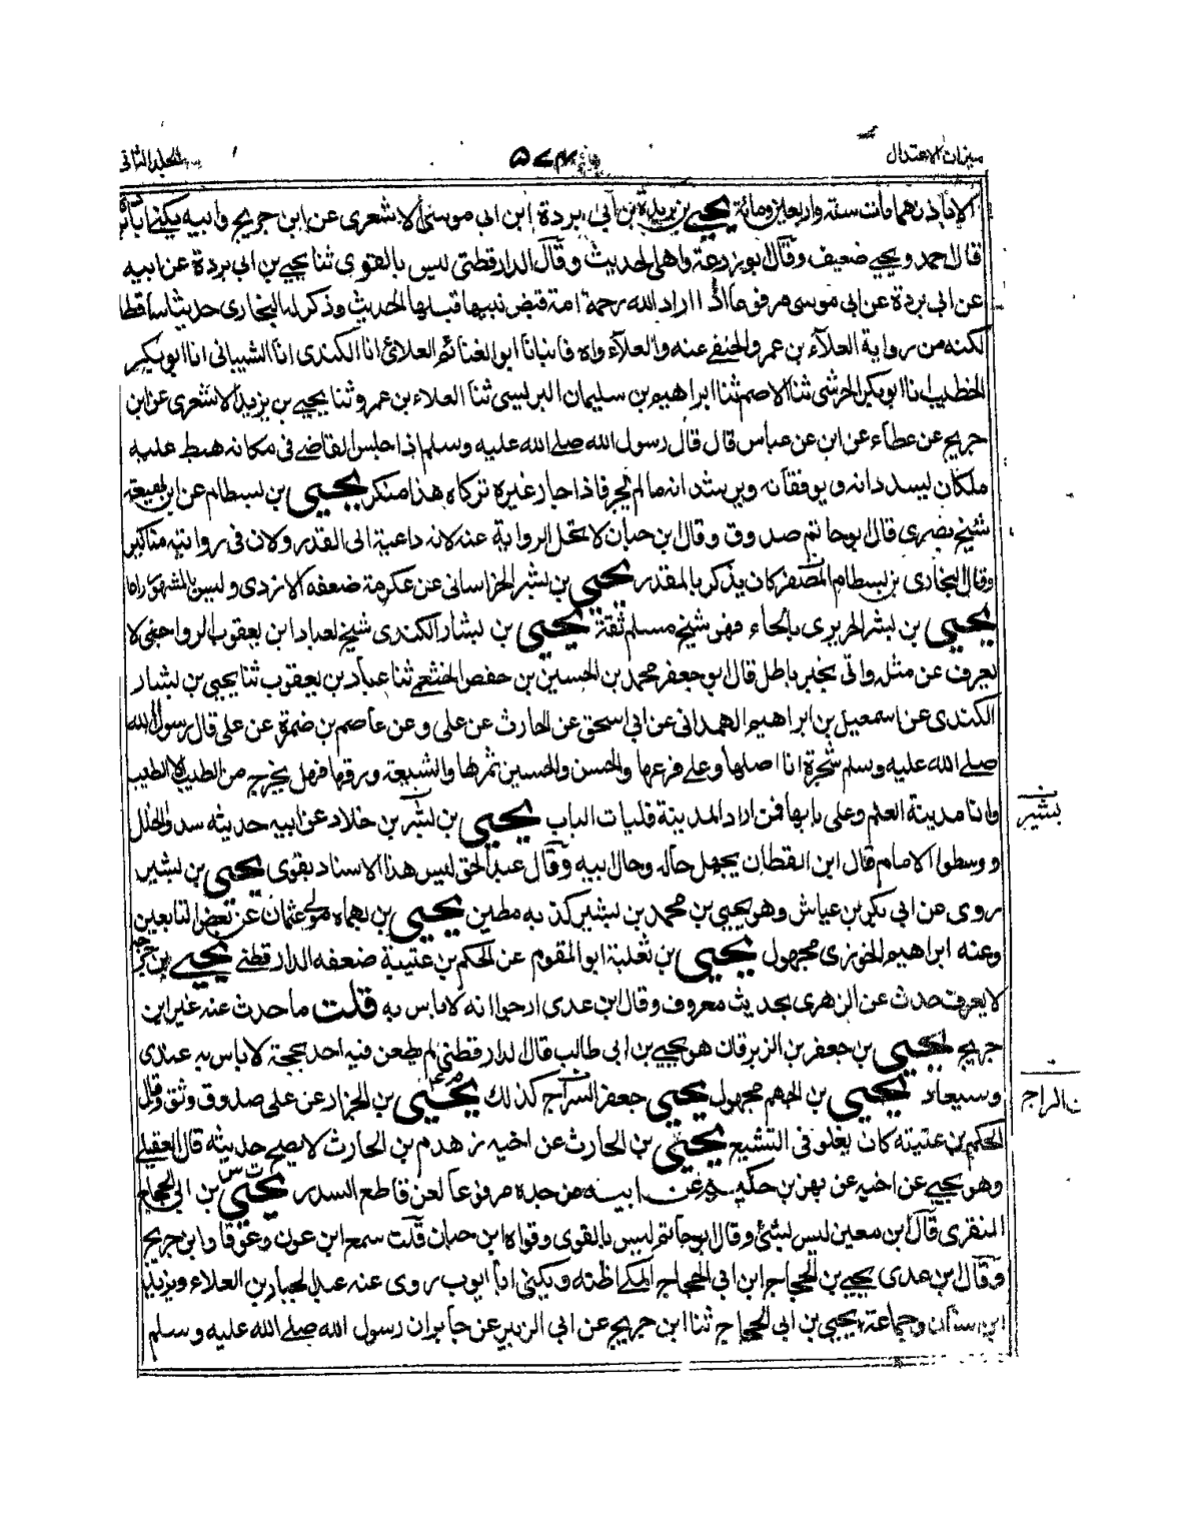 ميزان الاعتدال
المجلد الثاني
الا باذنهما مات سنة واربعين ومائة يحيى بن بريدة بن ابي بردة ابن ابي موسى الاشعرى عن ابن جريج وابيه يكنى
قال احمد ويحيى ضعيف وقال ابو زرعة واهى الحديث وقال الدارقطنى ليس بالقوى ثنا يحيى بن ابى بردة عن ابيه
عن ابى بردة عن ابى موسى مرفوعا اذا اراد الله رحمة امة قبض نبيها قبلها الحديث وذكر له البخارى حديثا ساقطا
لكنه من رواية العلاء بن عمرو الحنفى عنه والعلاء واه فانبانا ابو الغنائم العلائ انا الكندى انا الشيبانى انا ابو بكر
الخطيب نا ابو بكر الحرشى ثنا الاصم ثنا ابراهيم بن سليمان البرلسى ثنا العلاء بن عمرو ثنا يحيى بن يزيد الاشعرى عن ابن
جريج عن عطاء عن ابن عباس قال قال رسول الله صلى الله عليه وسلم اذا جلس القاضى فى مكانه هبط عليه
ملكان يسددانه ويوفقانه ويرشدانه مالم يجر فاذا جار عرجا وتركاه هذا منكر يحيى بن بسطام عن ابن لهيعة
شيخ بصرى قال ابو حاتم صدوق وقال ابن حبان لا تحل الرواية عنه لانه داعية الى القدر ولان فى روايته مناكير
وقال البخارى بن بسطام المصفر كان يذكر بالقدر يحيى بن بشر الخراسانى عن عكرمة ضعفه الازدى وليس بالمشهور
يحيى بن بشر الحريرى بالحاء فهو شيخ مسلم ثقة يحيى بن بشار الكندى شيخ لعباد ابن يعقوب الرواجنى لا
يعرف عن مثله واتى بخبر باطل قال ابو جعفر محمد بن الحسين بن حفص الخثعمى ثنا عباد بن يعقوب ثنا يحيى بن بشار
الكندى عن اسمعيل بن ابراهيم الهمدانى عن ابى اسحق عن الحارث عن على وعن عاصم بن ضمرة عن على قال رسول الله
صلى الله عليه وسلم شجرة انا اصلها وعلى فرعها والحسن والحسين ثمرها والشيعة ورقها فهل يخرج من الطيب الا الطيب
وانا مدينة العلم وعلى بابها فمن اراد المدينة فليات الباب يحيى بن بشر بن خلاد عن ابيه حديثه سدوا الخلل
ووسطوا الامام قال ابن القطان يجهل حاله وحال ابيه وقال عبد الحق ليس هذا الاسناد بقوى يحيى بن بشير
بشير
روى عن ابى بكر بن عياش وهو يحيى بن محمد بن بشير كذبه مطين يحيى بن بهماه مولى عثمان عن بعض التابعين
وعنه ابراهيم الخوزى مجهول يحيى بن ثعلبة ابو المقوم عن الحكم بن عتيبة ضعفه الدارقطنى يحيى بن
لا يعرف حدث عن الزهرى بحديث معروف وقال ابن عدى ارجو انه لا باس به قلت ما حدث عنه غير ابن
جريج يحيى بن جعفر بن الزبرقان هو يحيى بن ابى طالب قال الدارقطنى لم يطعن فيه احد بحجة لا باس به عندى
وسيعاد يحيى بن الجهم مجهول يحيى جعفر السراج كذلك يحيى بن الجزار عن على صدوق وثق وقال
ن الراج
الحكم بن عتيبة كان يغلو فى التشيع يحيى بن الحارث عن اخيه زهدم بن الحارث لا يصح حديثه قال العقيلى
وهو يحيى عن اخيه عن بهز بن حكيم عن ابيه من جده مرفوعا لعن قاطع السدر يحيى بن ابى الحجاج
المنقرى قال ابن معين ليس بشئ وقال ابو حاتم ليس بالقوى وقواه ابن حبان قلت سمع ابن عون وعوفا وابن جريج
وقال بن عدى يحيى بن الحجاج ابن ابى الحجاج ويكنى ابا ايوب روى عنه عبد الجبار بن العلاء ويزيد
ابن سنان وجماعة يحيى بن ابى الحجاج ثنا ابن جريج عن ابى الزبير عن جابر ان رسول الله صلى الله عليه وسلم